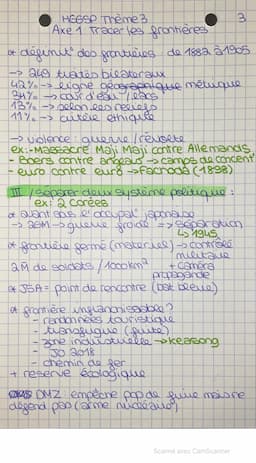 HGGSP Thème 3
3
Axe 1 Tracer les frontières
* définit° des frontières de 1882 à 1905
-> 249 traités bilatéraux
42% -> ligne géographique métrique
34% -> cour d'eau / lacs
13% -> selon les reliefs
11% -> critère ethnique
-> violence : guerre / révolte
ex: - Massacre Maji Maji contre Allemands
- Boers contre anglais -> camps de concent°
- euro contre euro -> Fachoda (1898)
III / Séparer deux système politique :
ex: 2 corées
* avant sous l'occupat° japonaise
-> 2GM -> guerre froide => séparation
↳ 1945
* frontière fermé (matériel) -> contrôle
militaire
2M de soldats / 1000km² + caméra
propagande
* JSA = point de rencontre (bât bleue)
* frontière infranchissable?
- randonnées touristique
- transfuge (fuite)
- zone industrielle -> Keasong
- JO 2018
- chemin de fer
+ réserve écologique
DMZ empêche pop de fuire mais ne
défend pas (arme nucléaire)
Scanné avec CamScanner